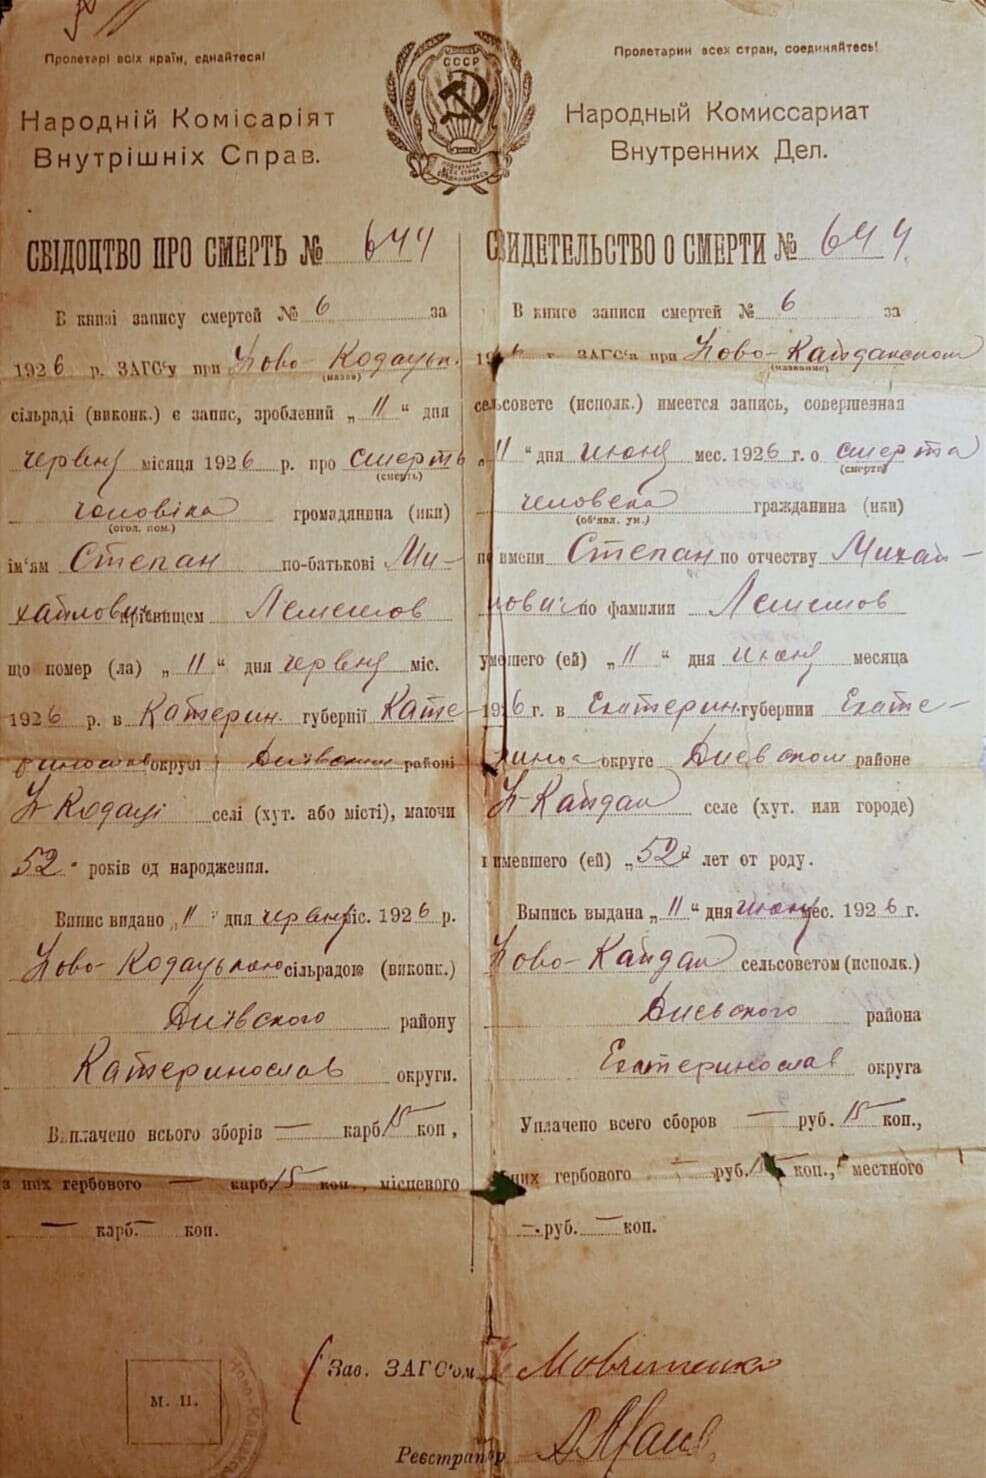 Пролетарі всіх країн, єднайтеся!
Народній Комісаріят
Внутрішніх Справ.
СВІДОЦТВО ПРО СМЕРТЬ № 644
В книзі запису смертей № 6 за
1926 р. ЗАГС'у при Ново-Кодацьк.
(назва)
сільраді (виконк.) є запис, зроблений „11“ дня
червня місяця 1926 р. про смерть
(смерть)
чоловіка громадянина (нки)
(огол. пом.)
ім'ям Степан по-батькові Ми-
хайлович прізвищем Лемешов
що помер (ла) „11“ дня червня міс.
1926 р. в Катерин. губернії Кате-
ринослав округі Диївським районі
Н-Кодаці селі (хут. або місті), маючи
52 років од народження.
Випис видано „11“ дня червня міс. 1926 р.
Ново-Кодацькою сільрадою (виконк.)
Диївського району
Катеринослав округи.
Виплачено всього зборів — карб. 15 коп,
з них гербового — карб. 15 коп., місцевого
— карб. — коп.
СССР
Пролетарии всех стран, соединяйтесь!
Народный Комиссариат
Внутренних Дел.
СВИДЕТЕЛЬСТВО О СМЕРТИ № 644.
В книге записи смертей № 6 за
1926 г. ЗАГС'а при Ново-Кайдакском
(название)
сельсовете (исполк.) имеется запись, совершенная
„11“ дня июня мес. 1926 г. о смерти
(смерть)
человека гражданина (нки)
(об'явл. ум.)
по имени Степан по отчеству Михай-
лович по фамилии Лемешов
умершего (ей) „11“ дня июня месяца
1926 г. в Екатерин. губернии Екате-
ринос округе Диевском районе
Н-Кайдак селе (хут. или городе)
имевшего (ей) „52“ лет от роду.
Выпись выдана „11“ дня июня мес. 1926 г.
Ново-Кайдак сельсоветом (исполк.)
Диевского района
Екатеринослав округа
Уплачено всего сборов — руб. 15 коп.,
них гербового — руб. 15 коп., местного
— руб. — коп.
М. П.
Зав. ЗАГС'ом
Реєстратор